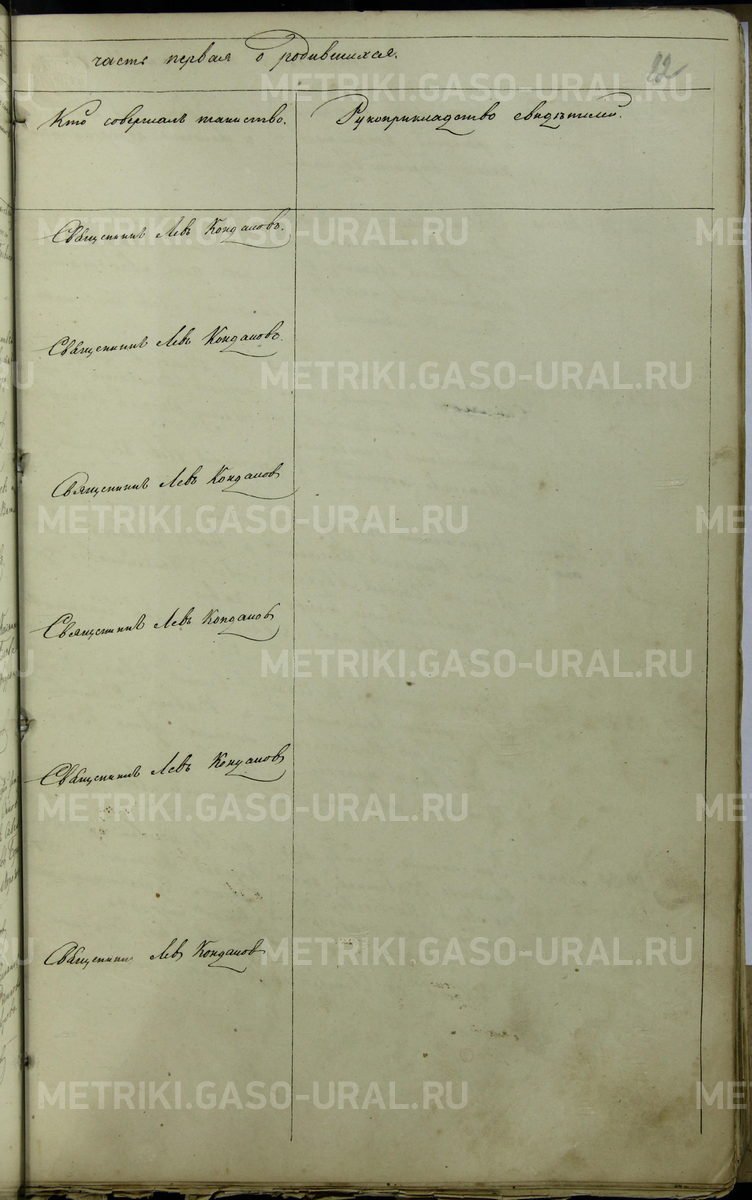 часть первая о родившихся.
22
Кто совершалъ таинство.
Рукоприкладство свидѣтелей.
Священникъ Левъ Кондаковъ.
Священникъ Левъ Кондаковъ.
Священникъ Левъ Кондаковъ
Священникъ Левъ Кондаковъ
Священникъ Левъ Кондаковъ
Священникъ Левъ Кондаковъ
METRIKI.GASO-URAL.RU